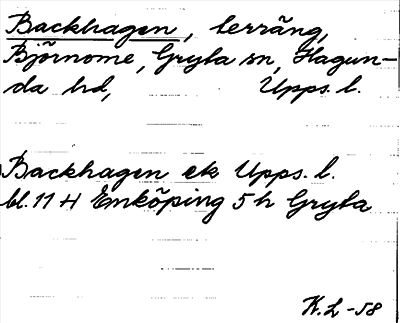 Backhagen, terräng,
Björnome, Gryta sn, Hagun-
da hd, Upps. l.
Backhagen ek Upps. l.
bl. 11 H Enköping 5 h Gryta
K.L -58